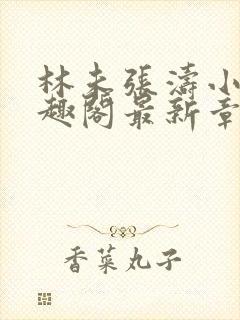 林未張濤小
趣閣最新章
香菜丸子